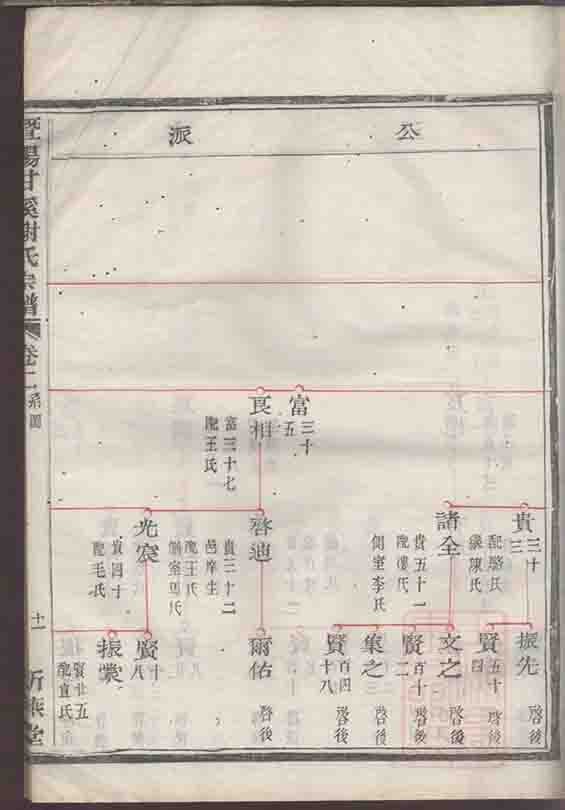 公派
富三十五
良相
富三十七
配王氏
貴三十三
配駱氏
繼陳氏
諸全
貴五十一
配樓氏
側室李氏
啓迪
貴三十二
邑庠生
配王氏
光宸
貴四十
配毛氏
振先
啓後
賢五十四
啓後
文之
啓後
賢百十二
啓後
集之
啓後
賢百四十八
啓後
爾佑
啓後
賢十八
振裳
賢廿五
配宣氏
暨陽甘溪謝氏宗譜
卷二
系圖
十一